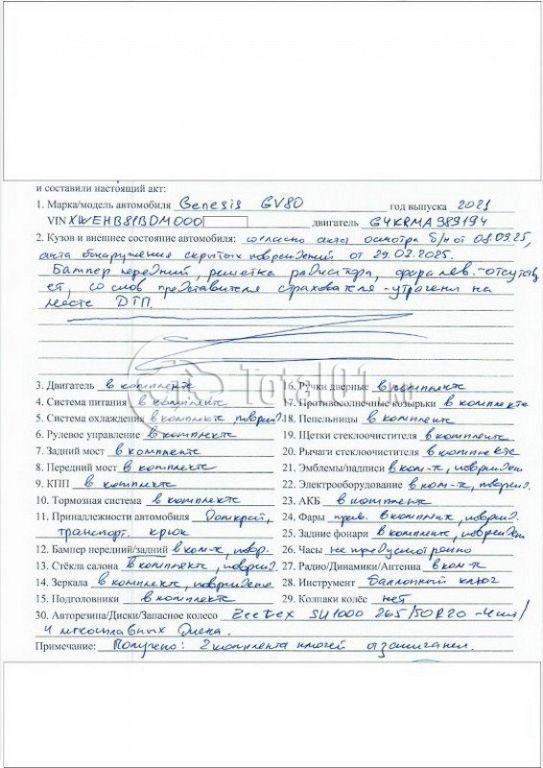 и составили настоящий акт:
1. Марка/модель автомобиля Genesis GV80 год выпуска 2021
VIN XWEHB81BDM000 двигатель G4KRMA389194
2. Кузов и внешнее состояние автомобиля: согласно акта осмотра б/н от 08.09.25,
акта обнаружения скрытых повреждений от 29.09.2025.
Бампер передний, решетка радиатора, фара лев. - отсутству
ет, со слов представителя страхователя - утрачены на
месте ДТП
3. Двигатель в комплекте
4. Система питания в комплекте
5. Система охлаждения в комплекте, поврежд.
6. Рулевое управление в комплекте
7. Задний мост в комплекте
8. Передний мост в комплекте
9. КПП в комплекте
10. Тормозная система в комплекте
11. Принадлежности автомобиля Домкрат,
транспорт. крюк
12. Бампер передний/задний в ком-к, повр.
13. Стёкла салона в комплекте, поврежд.
14. Зеркала в комплекте, повреждено
15. Подголовники в комплекте
16. Ручки дверные в комплекте
17. Противосолнечные козырьки в комплекте
18. Пепельницы в комплекте
19. Щетки стеклоочистителя в комплекте
20. Рычаги стеклоочистителя в комплекте
21. Эмблемы/надписи в ком-к, поврежден
22. Электрооборудование в ком-к, поврежд.
23. АКБ в комплекте
24. Фары прав. в комплект, поврежд.
25. Задние фонари в комплекте, поврежден
26. Часы не предусмотрено
27. Радио/Динамики/Антенна в ком-к
28. Инструмент Баллонный ключ
29. Колпаки колёс нет
30. Авторезина/Диски/Запасное колесо Zeetex SU1000 265/50R20 - 4шт/
4 легкосплавных диска.
Примечание: Получено: 2 комплекта ключей от зажигания.
Total01.ru